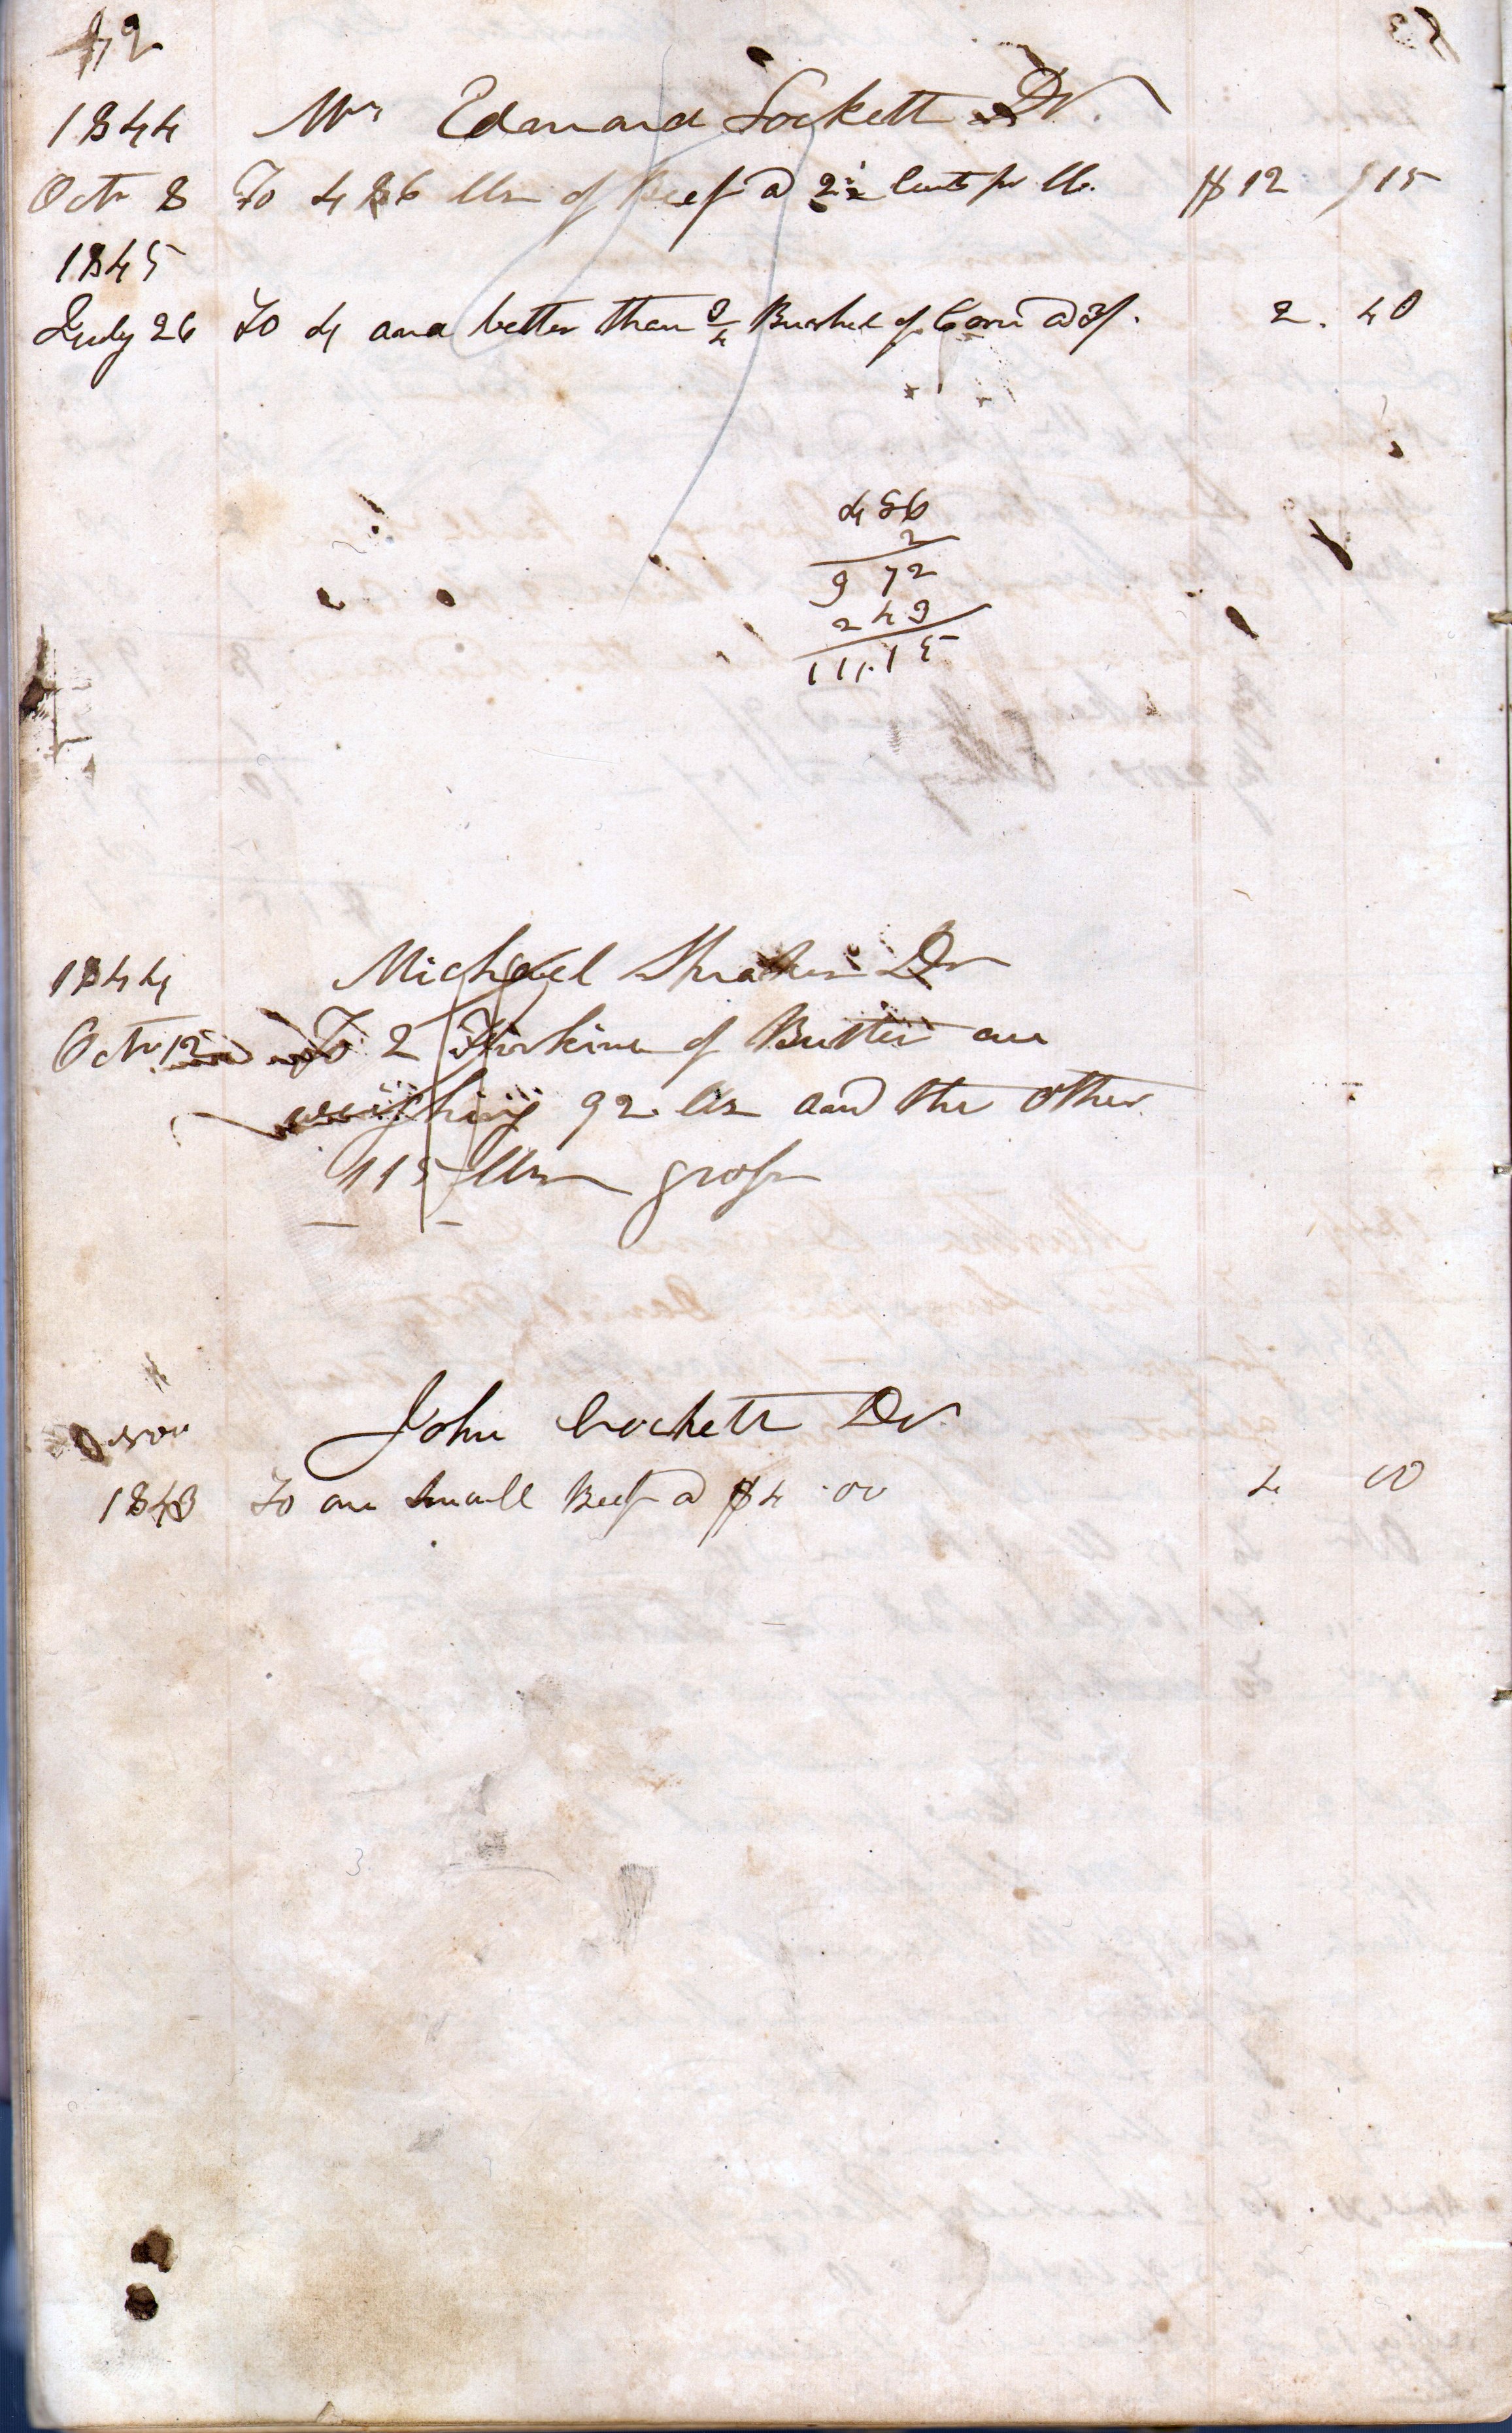 1844 Mr Edward Lockett Dr.
Octr 8 To 486 lbs of Beef a 2 1/2 Cents pr lb. $12 15
1845
July 26 To 4 and better than 3/4 Bushel of Corn a 3/. 2. 40
486
2
9 72
243
11.15
1844 Michael Dr
Octr 12 To 2 Firkins of Butter one
weighing 92 lbs and the other
115 lbs gross
Nov John Crockett Dr
1843 To one small Beef a $4.00 4 00